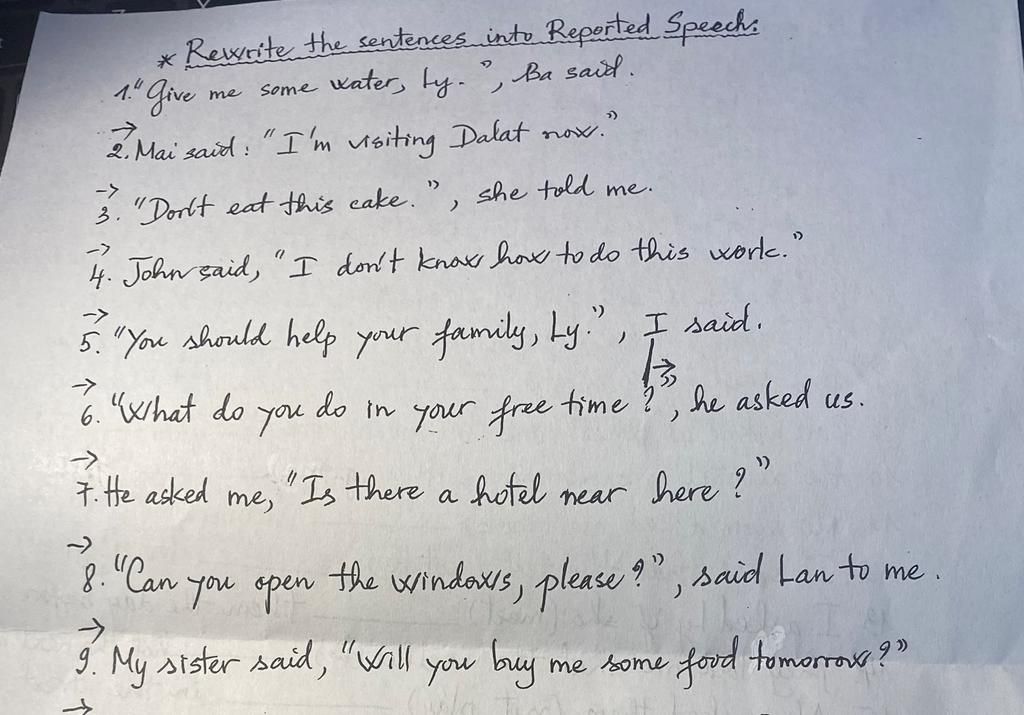 * Rewrite the sentences into Reported Speech:
1. "Give me some water, Ly.", Ba said.
→
2. Mai said: "I'm visiting Dalat now."
→
3. "Don't eat this cake.", she told me.
→
4. John said, "I don't know how to do this work."
→
5. "You should help your family, Ly.", I said.
→
6. "What do you do in your free time?", he asked us.
→
7. He asked me, "Is there a hotel near here?"
→
8. "Can you open the windows, please?", said Lan to me.
→
9. My sister said, "Will you buy me some food tomorrow?"
→